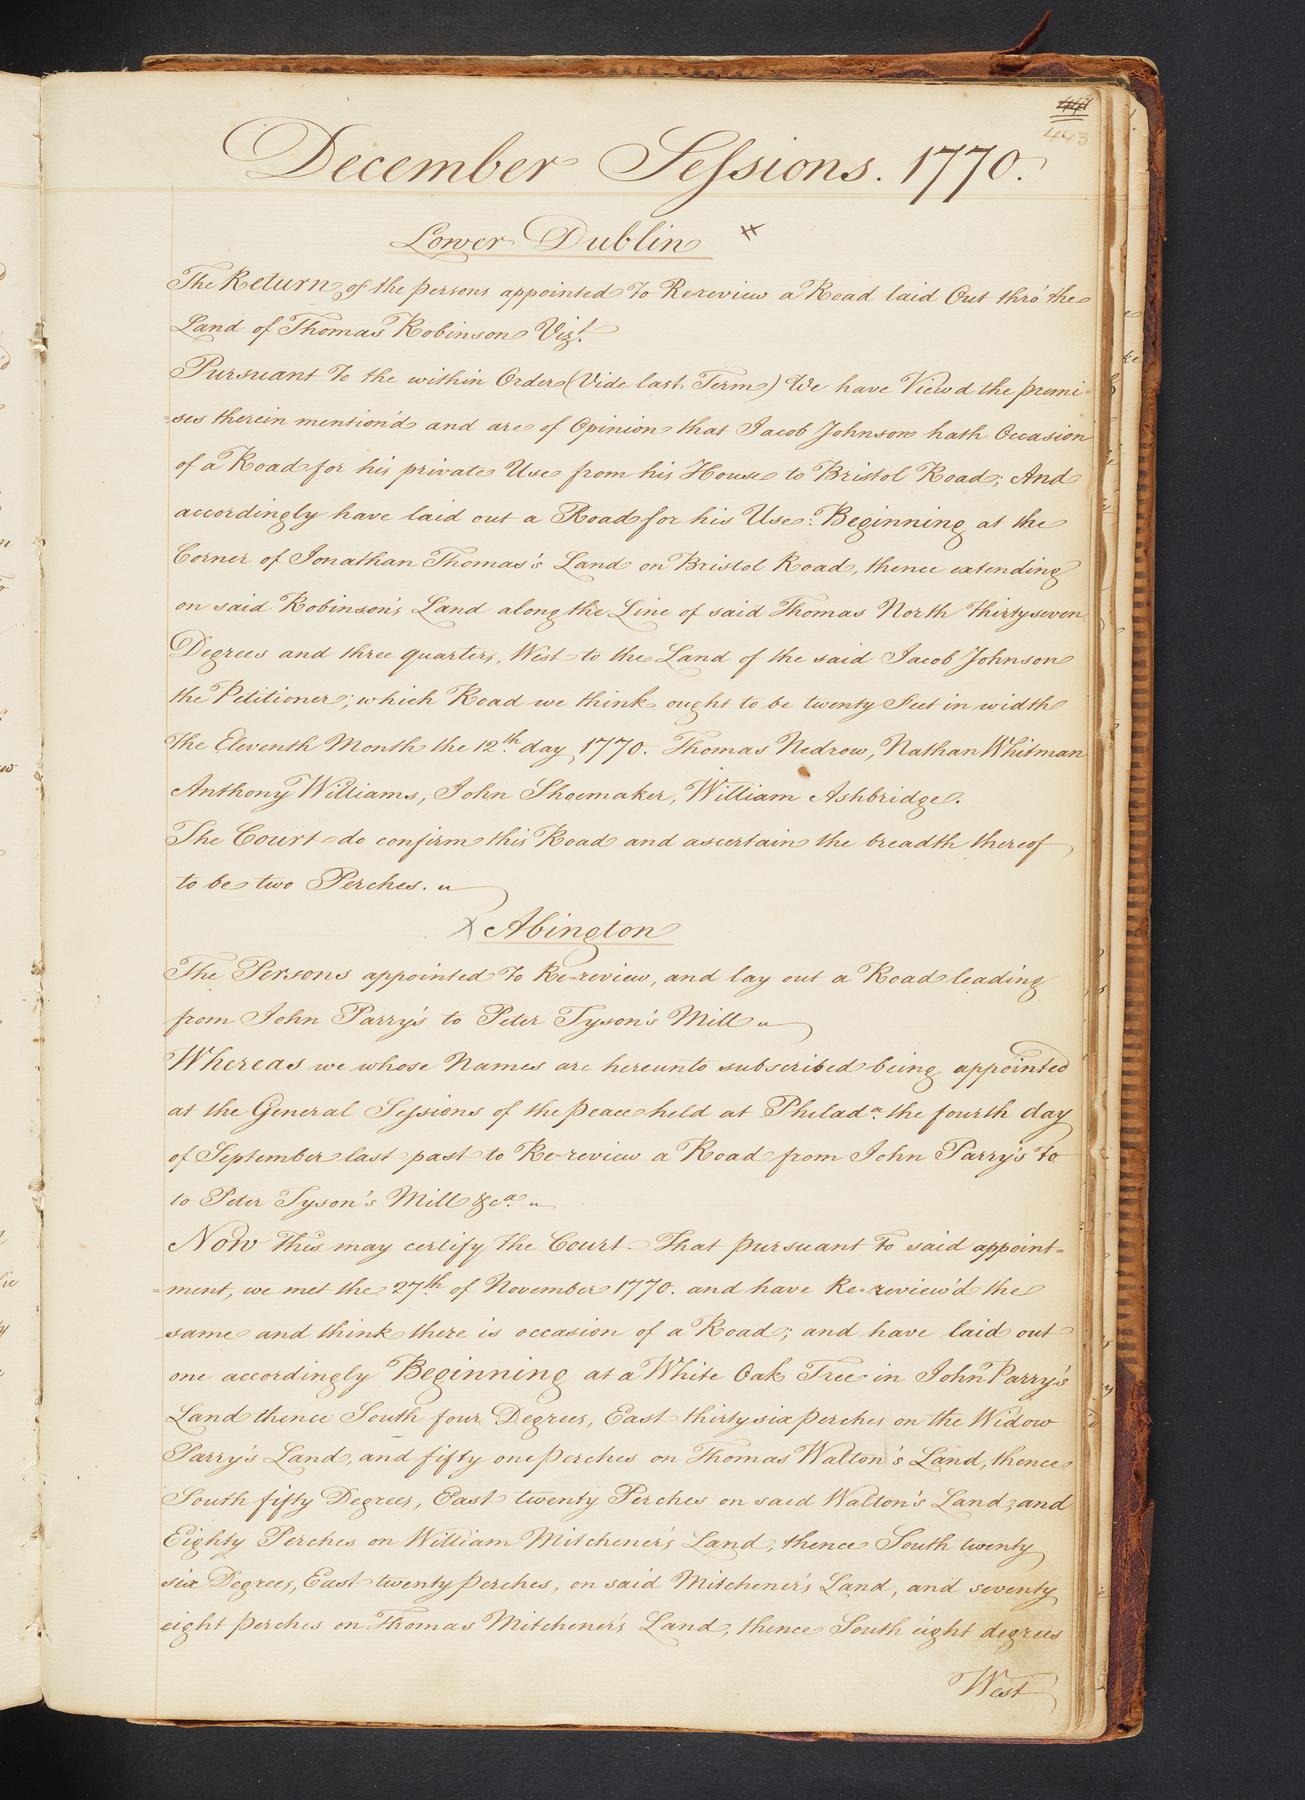 443
December Sessions. 1770.
Lower Dublin
The Return of the persons appointed to Rereview a Road laid Out thro' the
Land of Thomas Robinson Vizt.
Pursuant To the within Order (Vide last Term) We have View'd the premi-
=ses therein mention'd and are of Opinion that Jacob Johnson hath Occasion
of a Road for his private Use from his House to Bristol Road; And
accordingly have laid out a Road for his Use: Beginning at the
Corner of Jonathan Thomas's Land on Bristol Road, thence extending
on said Robinson's Land along the Line of said Thomas North Thirty seven
Degrees and three quarters, West to the Land of the said Jacob Johnson
the Petitioner; which Road we think ought to be twenty Feet in width
The Eleventh Month the 12th. day 1770. Thomas Nedrow, Nathan Whitman
Anthony Williams, John Shoemaker, William Ashbridge.
The Court do confirm this Road and ascertain the breadth thereof
to be two Perches. "
x Abington
The Persons appointed To Re-review, and lay out a Road leading
from John Parry's to Peter Tyson's Mill "
Whereas we whose Names are hereunto subscribed being appointed
at the General Sessions of the peace held at Philada. the fourth day
of September last past to Re-review a Road from John Parry's to
to Peter Tyson's Mill &ca. "
Now this may certify the Court That pursuant To said appoint=
=ment, we met the 27th. of November 1770. and have Re-review'd the
same and think there is occasion of a Road; and have laid out
one accordingly Beginning at a White Oak Tree in John Parry's
Land thence South four Degrees, East thirty six perches on the Widow
Parry's Land, and fifty one perches on Thomas Walton's Land, thence
South fifty Degrees, East twenty Perches on said Walton's Land; and
Eighty Perches on William Mitchener's Land, thence South twenty
six Degrees, East twenty perches, on said Mitchener's Land, and seventy
eight perches on Thomas Mitchener's Land, thence South eight degrees
West